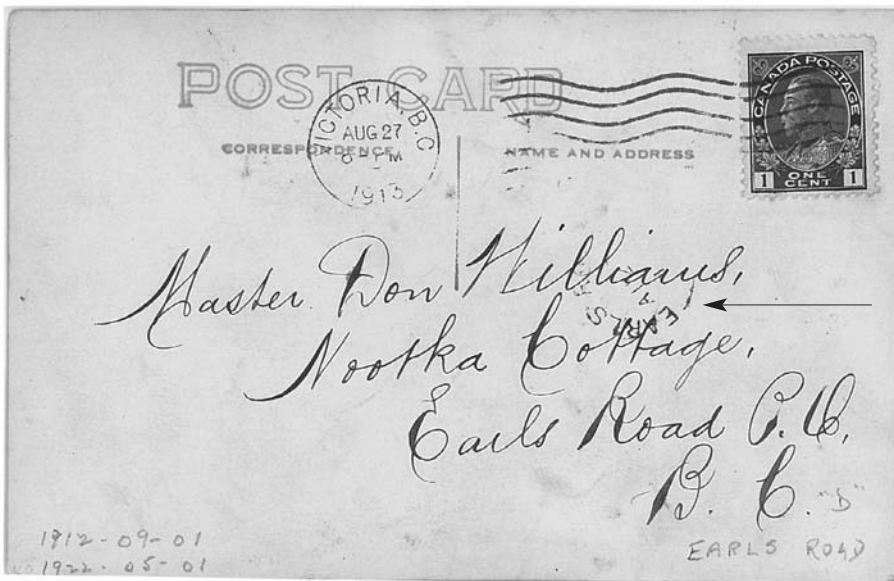 POST CARD
VICTORIA, B.C.
AUG 27
PM
1913
CORRESPONDENCE
NAME AND ADDRESS
CANADA POSTAGE
1 ONE CENT 1
Master Don Williams,
EARLS
Nootka Cottage,
Earls Road P.O,
B. C.
"D"
EARLS ROAD
1912-09-01
1922-05-01